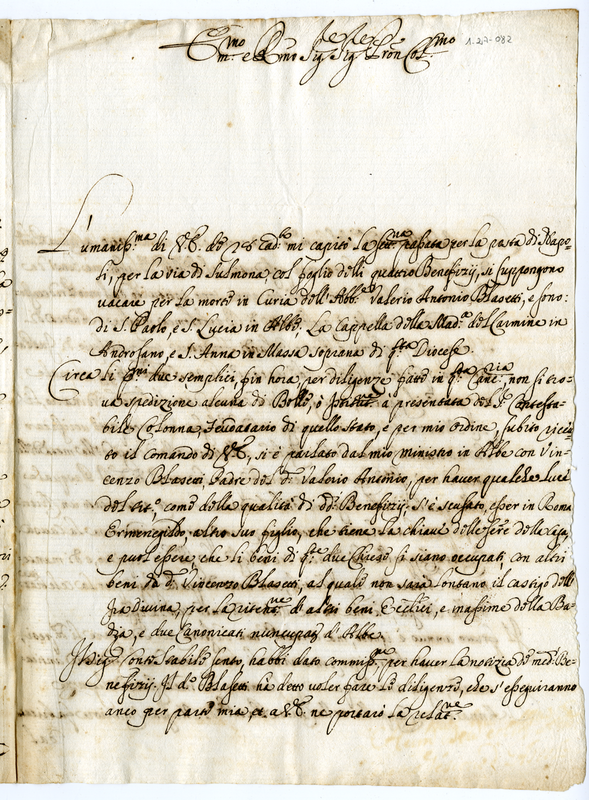 1-27-082
Em.mo e R.mo Sig.r Sig.r Pron Col.mo
L'umaniss.ma di V.E. de 18 Cad.te mi capitò la sett.na passata per la posta di Napo-
li, per la via di Sulmona col foglio delli quattro Benefizij, si suppongono
vacare per la morte in Curia dell'Abb.e Valerio Antonio Blasetti, e sono:
di S. Paolo, e S. Lucia in Albe, La Cappella della Mad.a del Carmine in
Androsano, e S. Anna in Massa soprana di q.ta Diocese.
Circa li p.mi due semplici, fin hora, per diligenze fatte in q.ta Canc.ria, non si tro-
va spedizione alcuna di Bolle, ò à presentata del S.r Contesta-
bile Colonna, Feudatario di quello Stato, e per mio ordine, subito ricevu-
to il Comando di V.E., si è parlato dal mio ministro in Albe con Vin-
cenzo Blasetti Padre del d.o Valerio Antonio, per haver qualche luce
del tit.o, come della qualità di d.i Benefizij: s'è scusato, esser in Roma
Ermenegildo altro suo figlio, che tiene la chiave delle scr.e della casa,
e pur essere, che li beni di q.te due Chiese si siano occupati, con altri
beni da d.o Vincenzo Blasetti, al quale non sarà lontano il castigo dell'
Ira divina, per la riten.ne di altri beni Eccl.ici, e massime della Ba-
dia, e due Canonicati nuncupati d'Albe.
Il Sig.r Contestabile sento, habbi dato commiss.ne, per haver la notizia de med.i Be-
nefizij. Il d.o Blasetti hà detto voler fare le diligenze, che s'esseguiranno
anco per parte mia, et a V.E. ne portarò la relat.ne